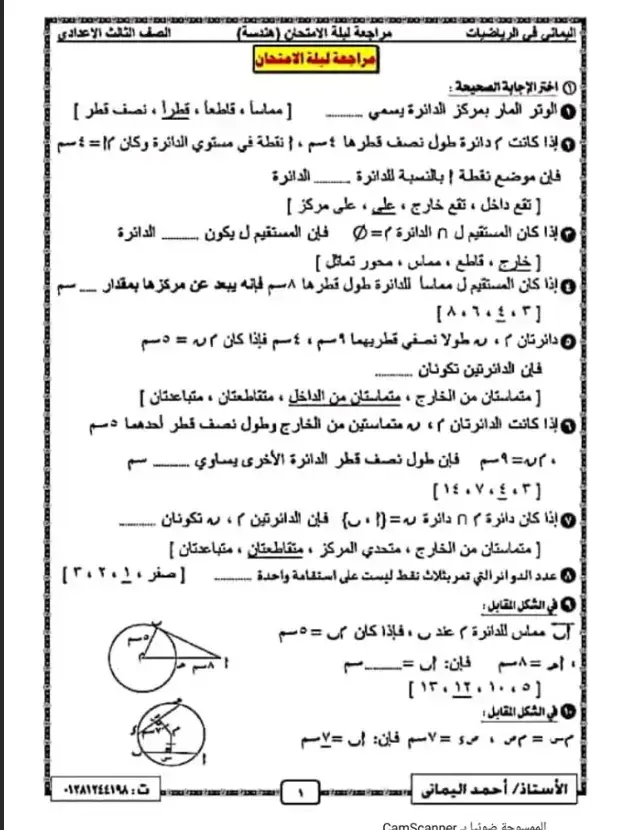 اليماني في الرياضيات مراجعة ليلة الامتحان (هندسة) الصف الثالث الإعدادي
مراجعة ليلة الامتحان
١ اختر الإجابة الصحيحة :
١ الوتر المار بمركز الدائرة يسمي ........... [ مماساً ، قاطعاً ، قطراً ، نصف قطر ]
٢ إذا كانت م دائرة طول نصف قطرها ٤ سم ، أ نقطة في مستوي الدائرة وكان م أ = ٤ سم
فإن موضع نقطة أ بالنسبة للدائرة ........... الدائرة
[ تقع داخل ، تقع خارج ، على ، على مركز ]
٣ إذا كان المستقيم ل ∩ الدائرة م = ∅ فإن المستقيم ل يكون ........... الدائرة
[ خارج ، قاطع ، مماس ، محور تماثل ]
٤ إذا كان المستقيم ل مماسا للدائرة طول قطرها ٨ سم فإنه يبعد عن مركزها بمقدار ..... سم
[ ٣ ، ٤ ، ٦ ، ٨ ]
٥ دائرتان م ، ن طولا نصفي قطريهما ٩ سم ، ٤ سم فإذا كان م ن = ٥ سم
فإن الدائرتين تكونان ...........
[ متماستان من الخارج ، متماستان من الداخل ، متقاطعتان ، متباعدتان ]
٦ إذا كانت الدائرتان م ، ن متماستين من الخارج وطول نصف قطر أحدهما ٥ سم
، م ن = ٩ سم فإن طول نصف قطر الدائرة الأخرى يساوي ........... سم
[ ٣ ، ٤ ، ٧ ، ١٤ ]
٧ إذا كان دائرة م ∩ دائرة ن = { أ ، ب } فإن الدائرتين م ، ن تكونان ...........
[ متماستان من الخارج ، متحدتي المركز ، متقاطعتان ، متباعدتان ]
٨ عدد الدوائر التي تمر بثلاث نقط ليست على استقامة واحدة ........... [ صفر ، ١ ، ٢ ، ٣ ]
٩ في الشكل المقابل :
أب مماس للدائرة م عند ب ، فإذا كان م ب = ٥ سم
، أ جـ = ٨ سم فإن : أب = ........... سم
[ ٥ ، ١٠ ، ١٢ ، ١٣ ]
ب
٥ سم
م
جـ ٨ سم أ
١٠ في الشكل المقابل :
م س = م ص ، جـ د = ٧ سم فإن : أب = ٧ سم
جـ
ص
د ٧ سم م
ب س أ
الأستاذ/ أحمد اليماني ١ ت : ٠١٢٨١٢٤٤١٩٨
الممسوحة ضوئيا بـ CamScanner